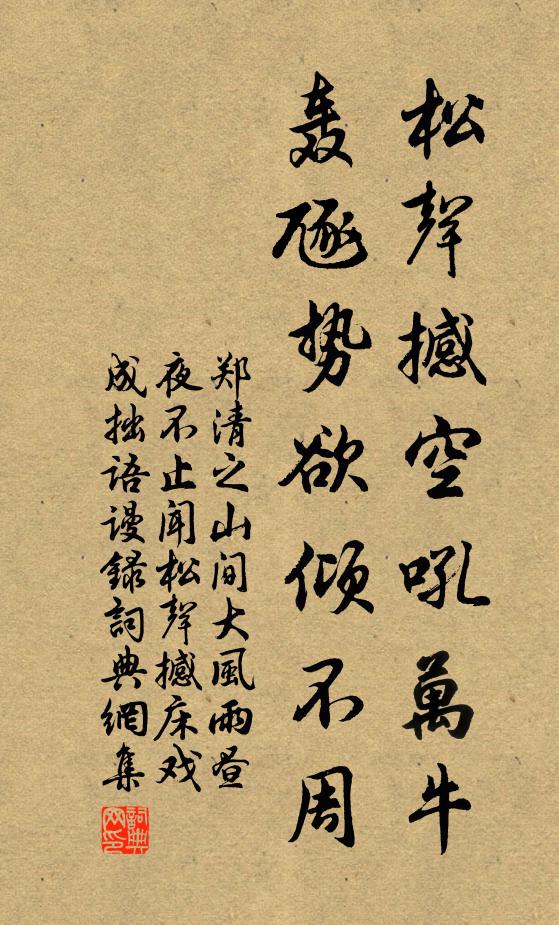 松聲撼空吼萬牛
轰豗势欲倾不周
郑清之山间大風雨昼
夜不止闻松聲撼床戏
成拙语谩録詞典網集
詞典网印